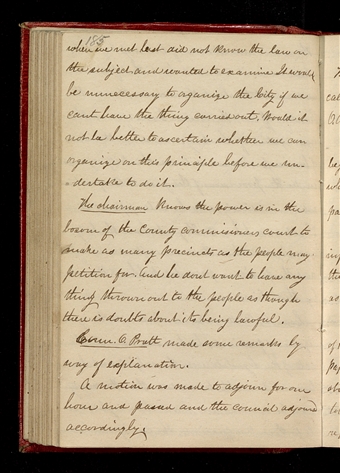 185
when we met last did not know the law on
the subject and wanted to examine It would
be unnecessary to aganize the City if we
cant have the thing carried out, Would it
not be better to ascertain whether we can
organize on this principle before we un-
-dertake to do it.
The chairman Knows the power is in the
bosom of the County commissioners court to
make as many precincts as the people may
petition for. And he dont want to have any
thing thrown out to the people as though
there is doubts about its being lawful.
Coun. O. Pratt made some remarks by
way of explanation.
A motion was made to adjourn for one
hour and passed and the council adjourned
accordingly.